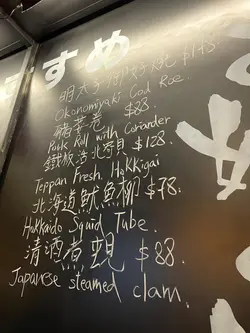 すすめ
明太子御好燒 $148
Okonomiyaki Cod Roe.
豬芫卷 $88.
Pork Roll with Coriander
鐵板活北寄貝 $128.
Teppan Fresh Hokkigai
北海道魷魚柳 $78.
Hokkaido Squid Tube.
清酒煮蜆 $88.
Japanese steamed clam.